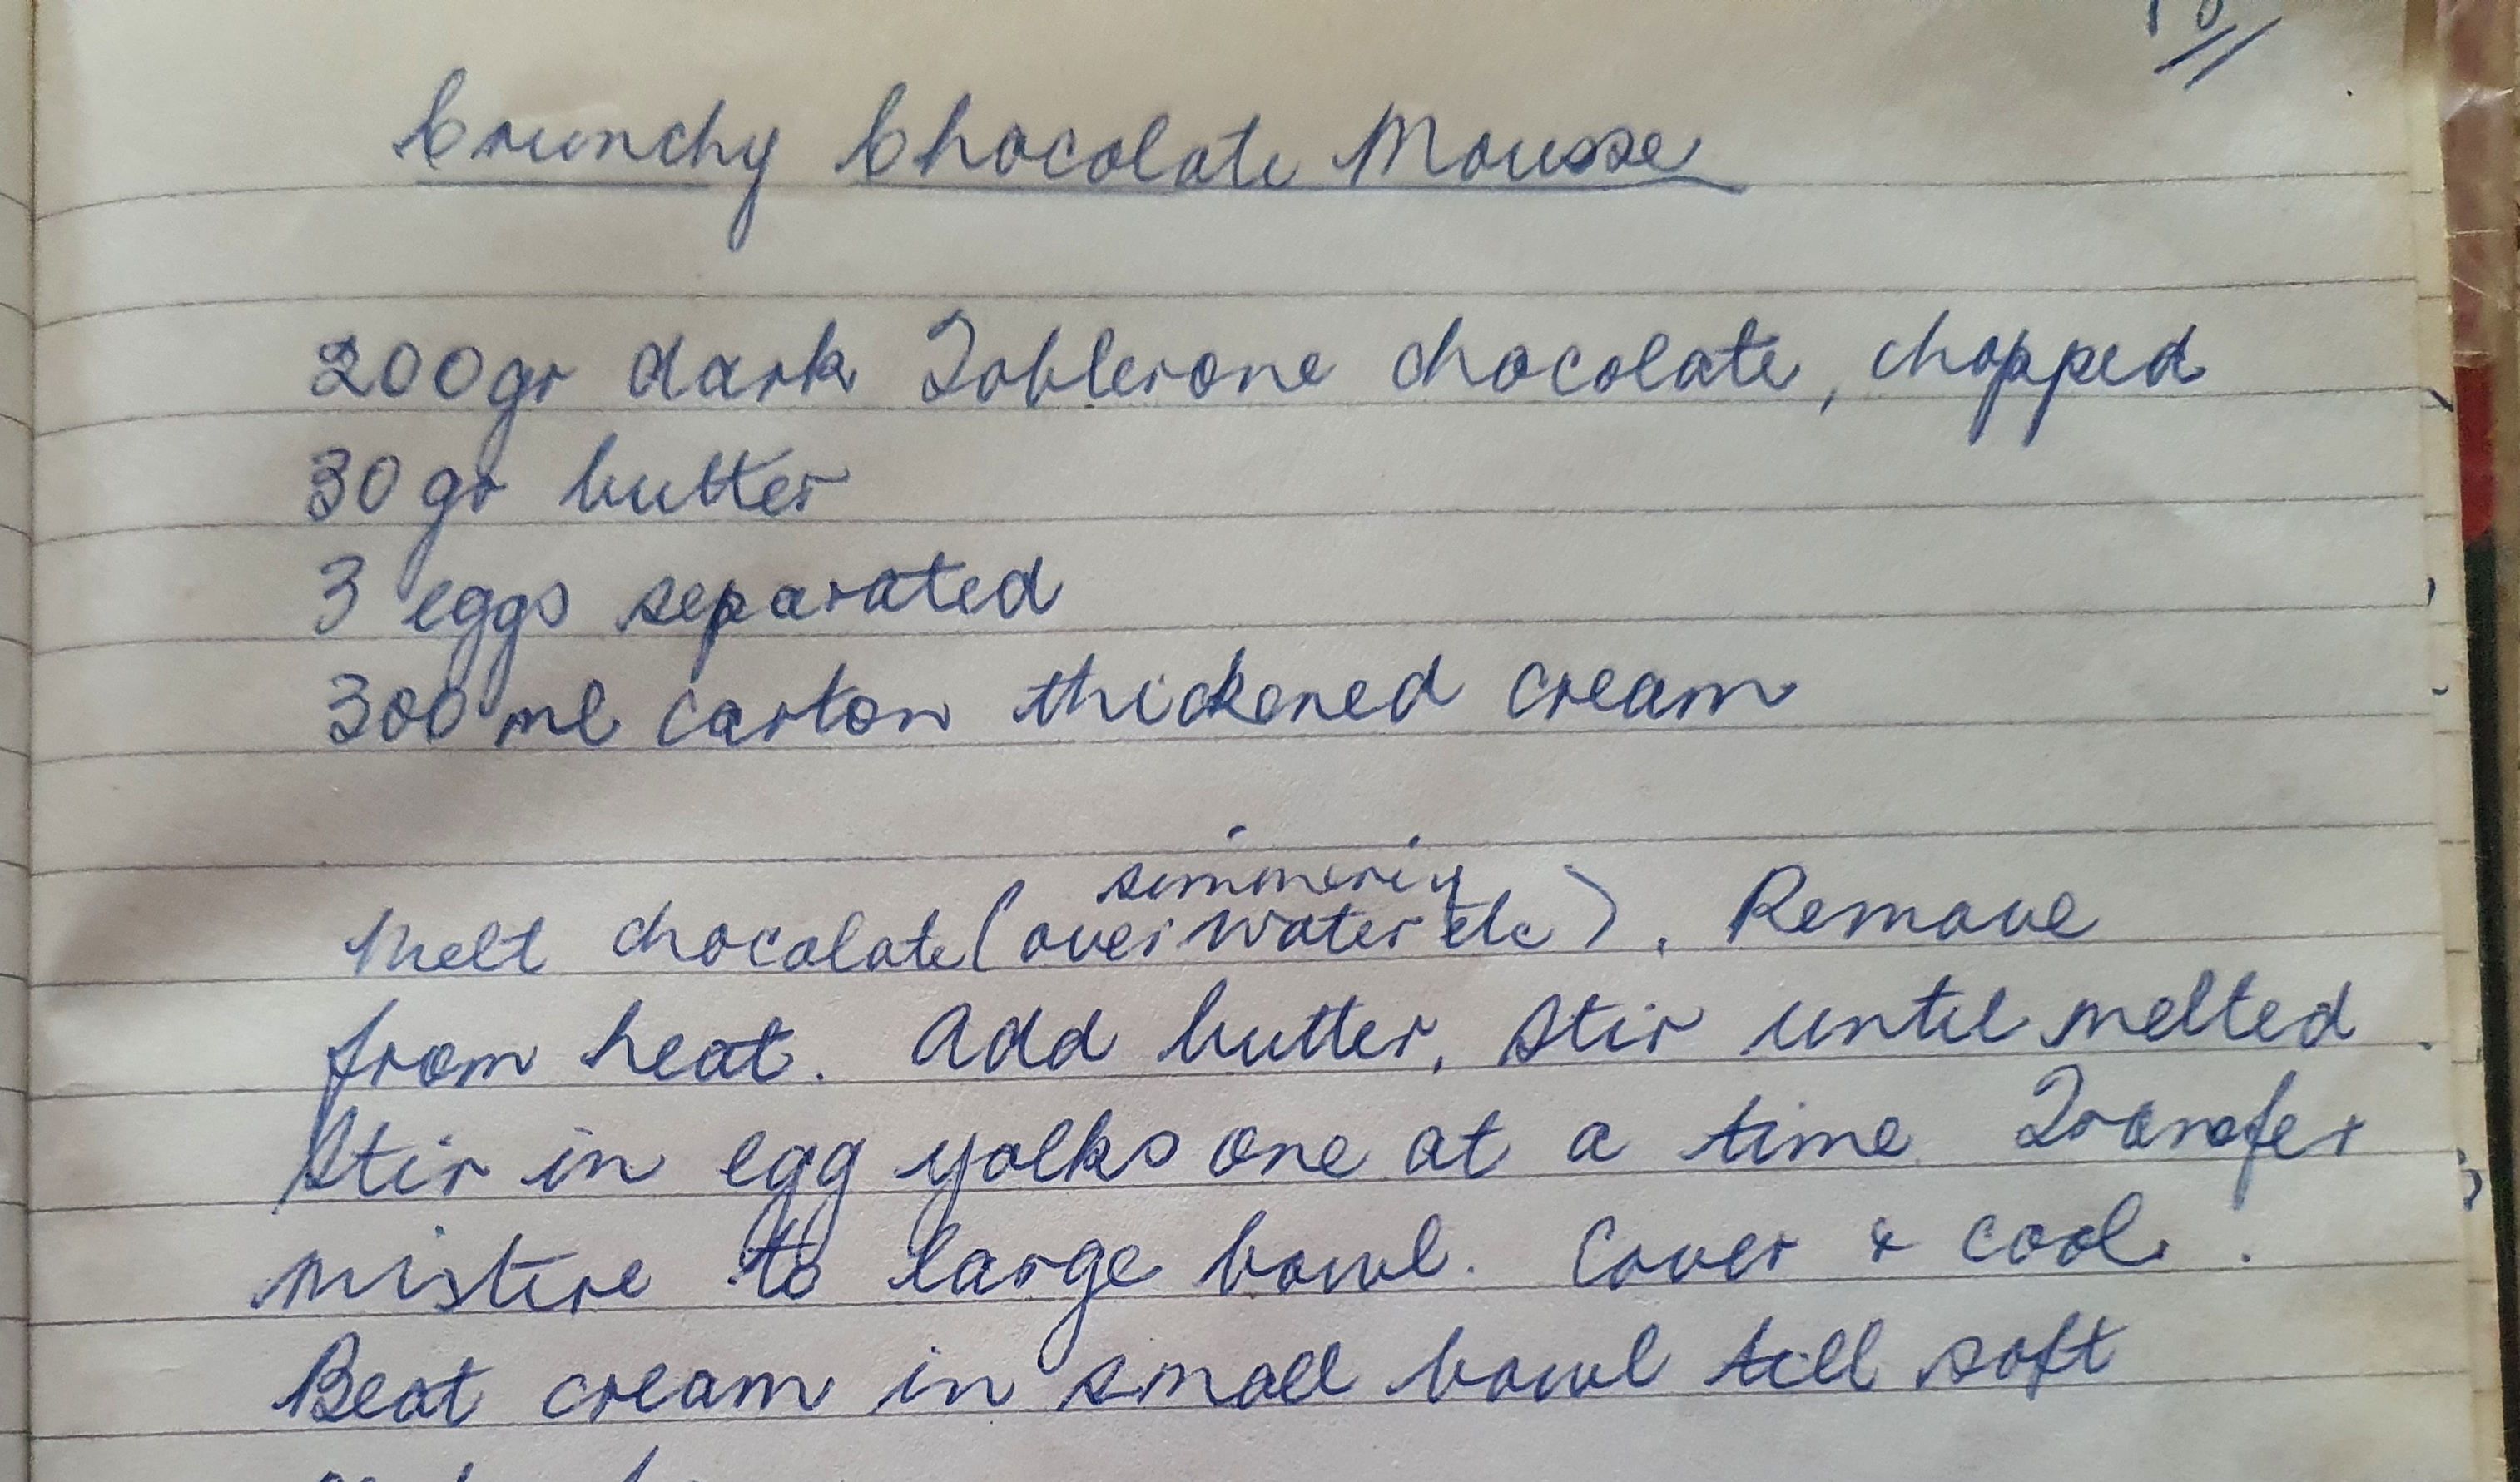 Crunchy Chocolate Mousse
200gr dark Toblerone chocolate, chopped
30 gr butter
3 eggs separated
300 ml carton thickened cream
simmering
Melt chocolate (over water etc). Remove
from heat. Add butter, stir until melted.
Stir in egg yolks one at a time. Transfer
mixture to large bowl. Cover & cool.
Beat cream in small bowl till soft